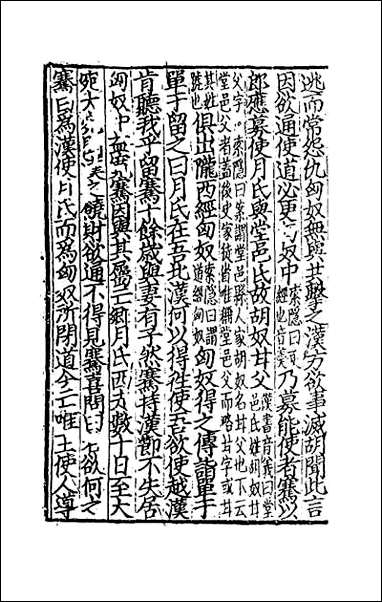 逃而常怨仇匈奴無與共擊之漢方欲事滅胡聞此言
因欲通使道必更奴中索隱曰更經也音羹乃募能使者騫以
郎應募使月氏與堂邑氏故胡奴甘父漢書音義曰堂邑氏姓胡奴甘
父字索隱曰案謂堂邑縣人家胡奴名甘父也下云
堂邑父者蓋後史家從省唯稱堂邑父而略甘字或甘
其姓號也俱出隴西經匈奴索隱曰謂道經匈奴匈奴得之傳詣單于
單于留之曰月氏在吾北漢何以得往使吾欲使越漢
肯聽我乎留騫十餘歲與妻有子然騫持漢節不失居
匈奴中益寬騫因與其屬亡鄉月氏西走數十日至大
宛大漢之饒財欲通不得見騫喜問曰若欲何之
騫曰爲漢使月氏而爲匈奴所閉道今亡唯王使人導